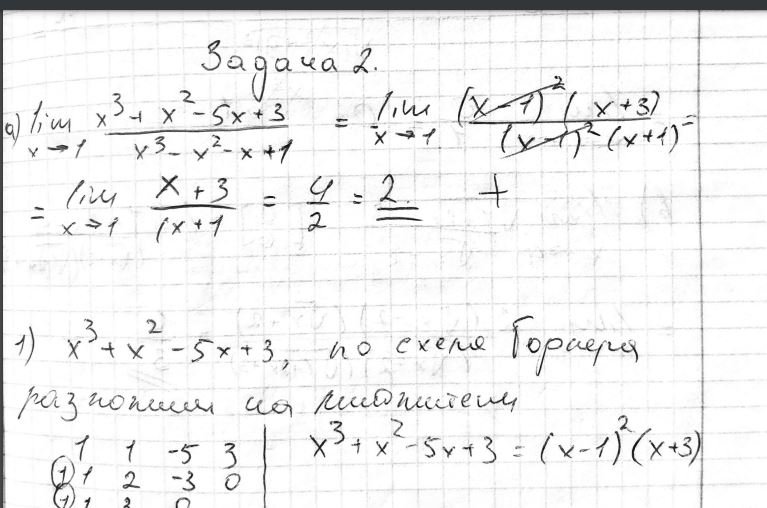 Задача 2.
а) lim x→1 (x³ + x² - 5x + 3)/(x³ - x² - x + 1) = lim x→1 ((x-1)² (x+3))/((x-1)² (x+1)) =
= lim x→1 (x+3)/(x+1 = 4/2 = 2. +
1) x³ + x² - 5x + 3, по схеме Горнера
разложим на множители
1 1 -5 3 | x³ + x² - 5x + 3 = (x-1)² (x+3)
1 1 2 -3 0
1 1 3 0